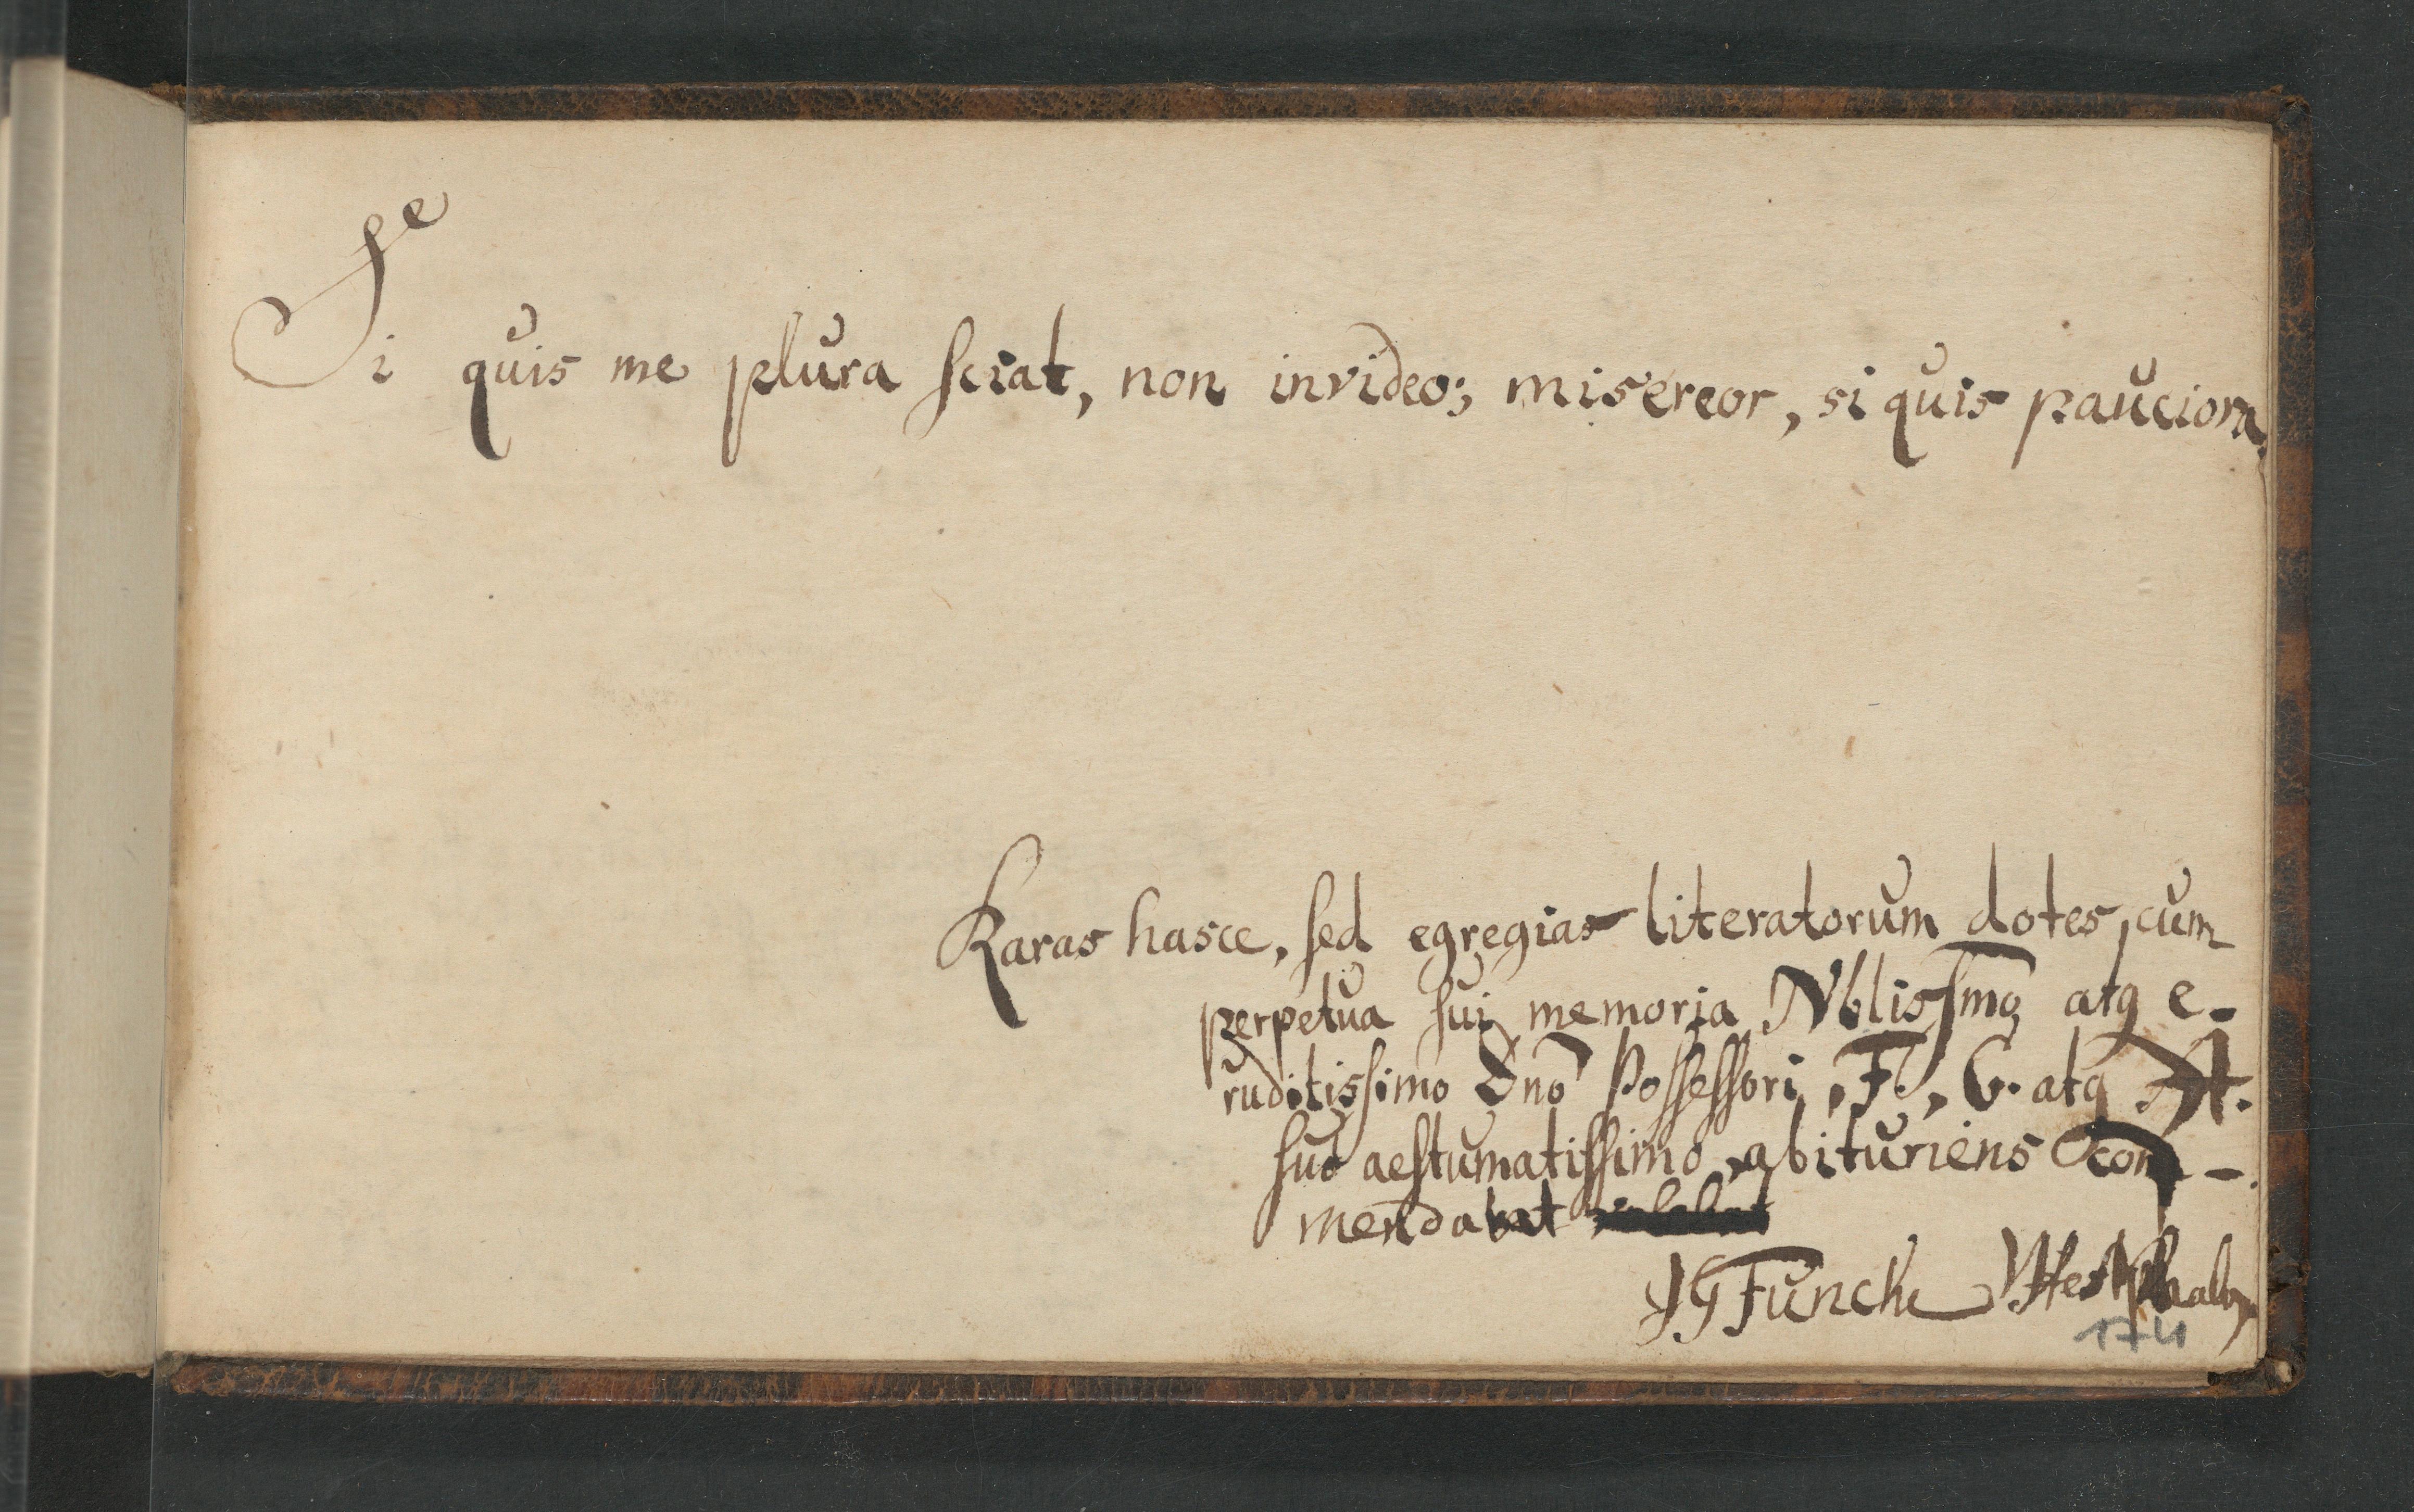 Si quis me plura sciat, non invideo; misereor, si quis pauciora.
Raras hasce, sed egregias literatorum dotes, cum
perpetua sui memoria Nblissimo atq e-
ruditissimo Dno Possessori, F., C. atq A.
suo aestumatissimo, abituriens com-
mendabat
JG Funck Westphalus
174